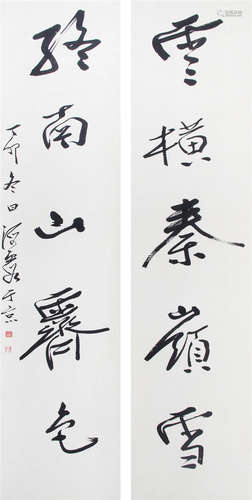 雲橫秦嶺雪
終南山霽色
丁卯冬日 于京